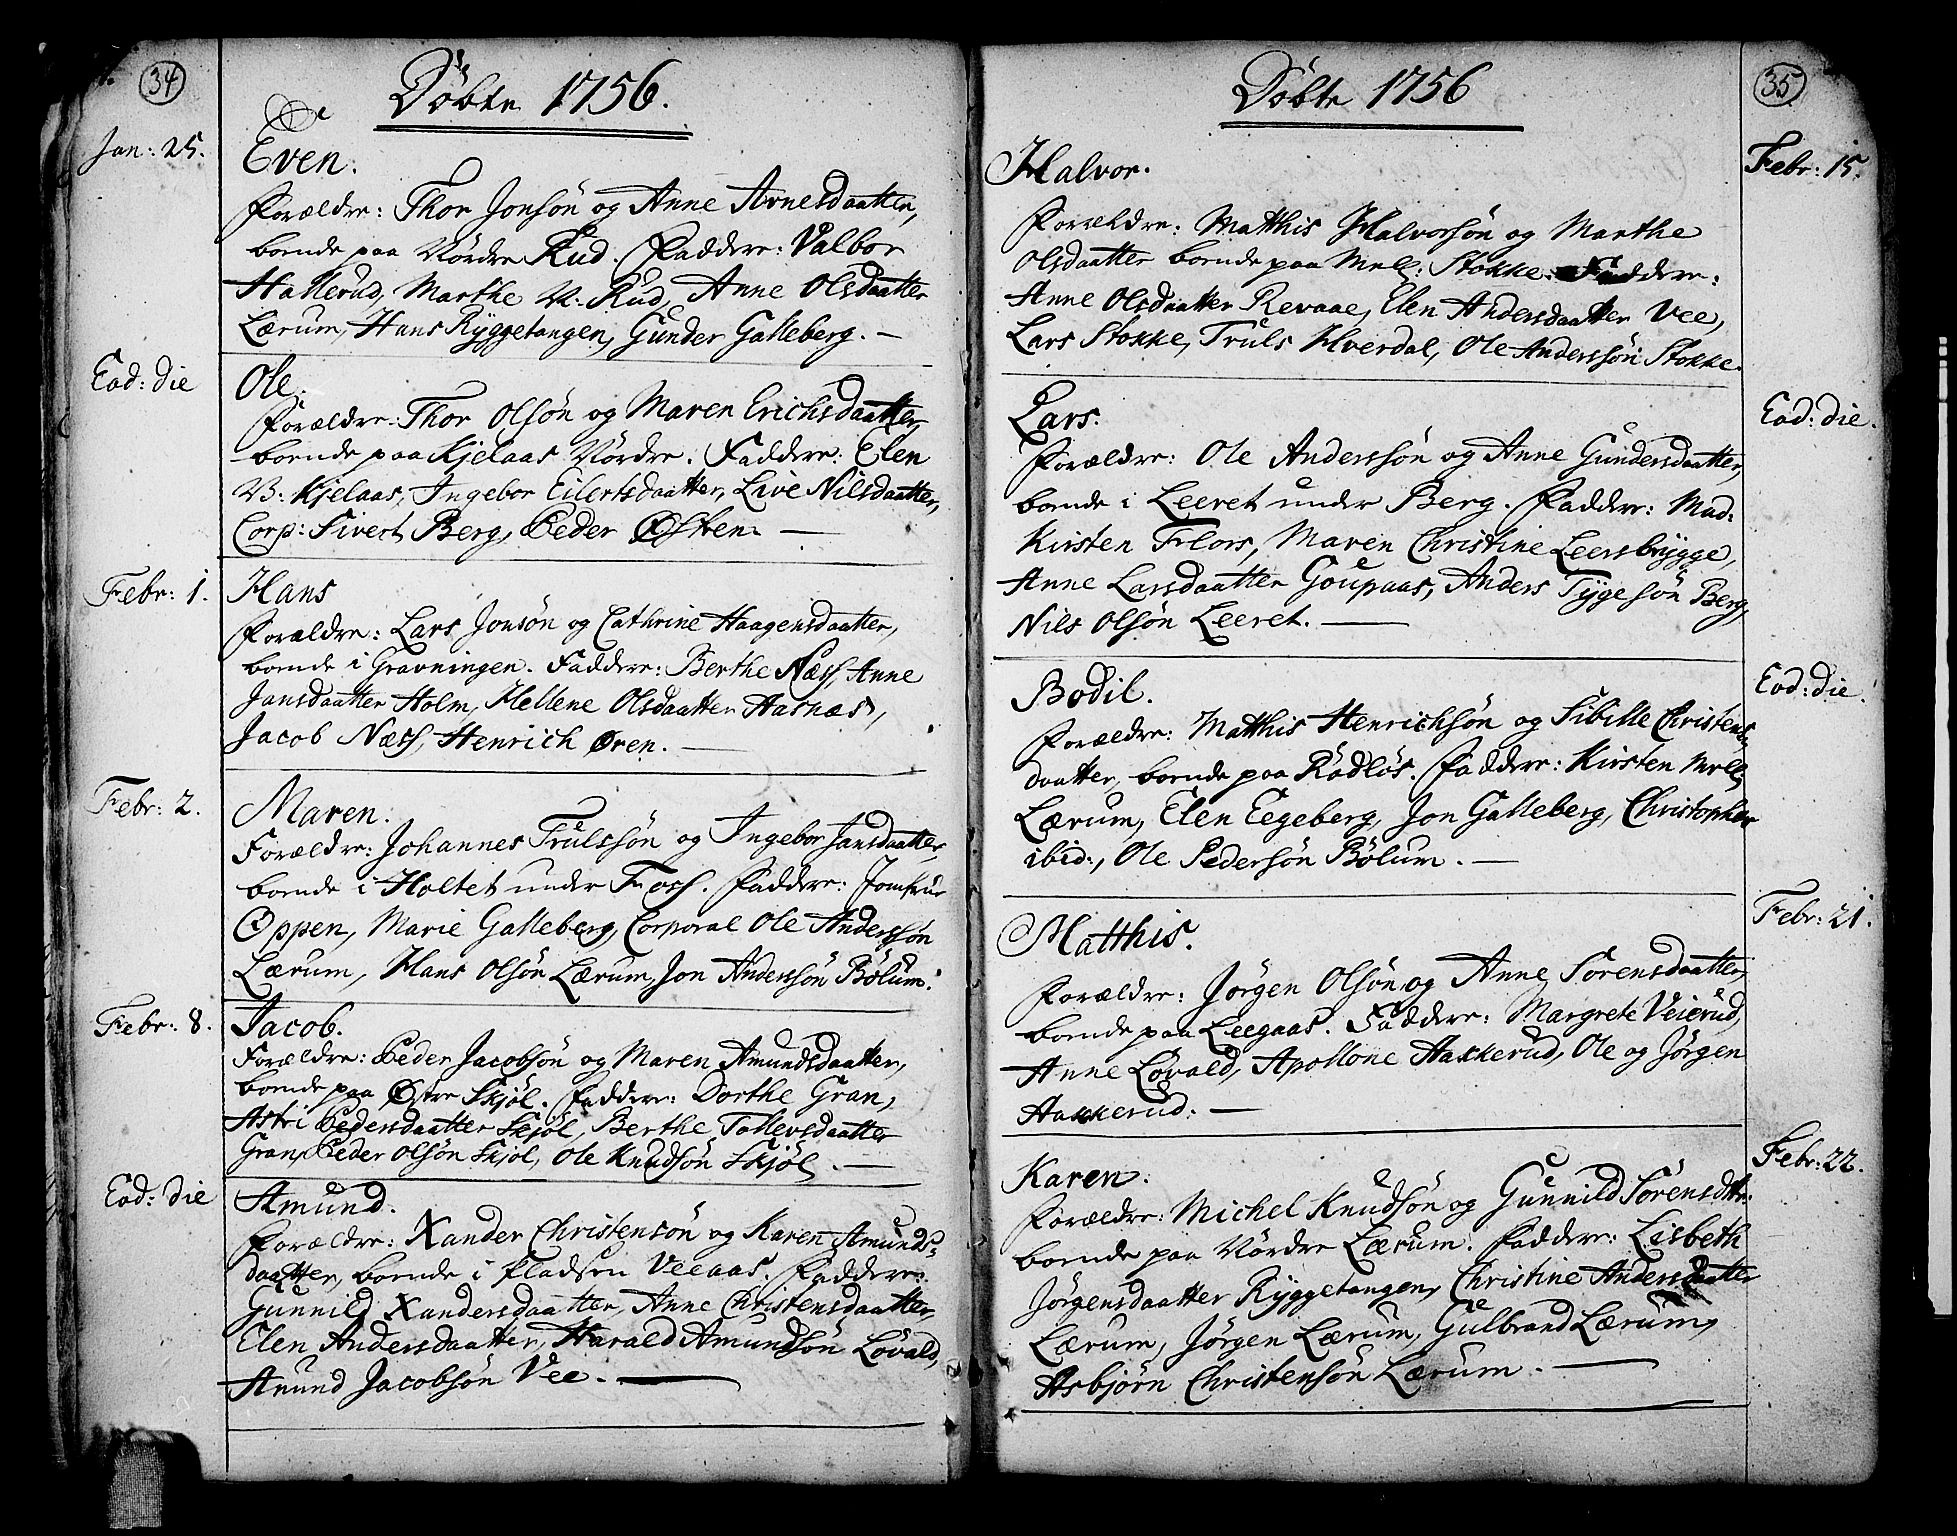 34
Döbte 1756.
Jan: 25.
Even.
Forældre: Thor Jonsön og Anne Arnesdaatter,
boende paa Nördre Rud. Faddere: Valbor
Hallerud, Marthe N: Rud, Anne Olsdaatter
Lærum, Hans Ryggetangen, Gunder Galleberg. —
Ead: die
Ole.
Forældre: Thor Olsön og Maren Erichsdaatter,
boende paa Kjelaas Nördre. Faddere: Elen
N: Kjelaas, Ingebor Eilertsdaatter, Live Nilsdaatter,
Corp: Sivert Berg, Peder Østen. —
Febr: 1.
Hans
Forældre: Lars Jonsön og Cathrine Haagensdaatter,
boende i Gravningen. Faddere: Berthe Næss, Anne
Jansdaatter Holm, Hellene Olsdaatter Aasnæs,
Jacob Næss, Henrich Øren. —
Febr: 2.
Maren.
Forældre: Johannes Trulssön og Ingebor Jansdaatter,
boende i Holtet under Foss. Faddere: Jomfrue
Oppen, Marie Galleberg, Corporal Ole Anderssön
Lærum, Hans Olsön Lærum, Jon Anderssön Bölum.
Febr: 8.
Jacob.
Forældre: Peder Jacobsön og Maren Amundsdaatter,
boende paa Østre Skjöl. Faddere: Dorthe Gran,
Astri Pedersdaatter Skjöl, Berthe Tollevsdaatter
Gran, Peder Olsön Skjöl, Ole Knudsön Skjöl. —
Ead: die
Amund.
Forældre: Xander Christensön og Karen Amunds-
daatter, boende i Pladsen Veeaas. Faddere:
Gunnild Xandersdaatter, Anne Christensdaatter,
Elen Andersdaatter, Harald Amundsön Lövald,
Anund Jacobsön Vee. —
35
Döbte 1756
Febr: 15.
Halvor.
Forældre: Matthis Halvorsön og Marthe
Olsdaatter boende paa Mell: Stokke. Faddere:
Anne Olsdaatter Revaae, Elen Andersdaatter Vee,
Lars Stokke, Truls Hverdal, Ole Anderssön Stokke.
Ead: die.
Lars.
Forældre: Ole Anderssön og Anne Gundersdaatter,
boende i Leeret under Berg. Faddere: Mad:
Kirsten Flors, Maren Christine Leersbrygge,
Anne Larsdaatter Goupaas, Anders Tygesön Berg,
Nils Olsön Leeret. —
Eod: die.
Bodil.
Forældre: Matthis Henrichsön og Sibille Christens-
daatter, boende paa Rödlös. Faddere: Kirsten Mell:
Lærum, Elen Eegeberg, Jon Galleberg, Christopher
ibid:, Ole Pedersön Bölum. —
Febr: 21.
Matthis.
Forældre: Jörgen Olsön og Anne Sörensdaatter,
boende paa Leegaas. Faddere: Margrete Veierud,
Anne Lövald, Apollone Aakkerud, Ole og Jörgen
Aakkerud. —
Febr: 22.
Karen.
Forældre: Michel Knudsön og Gunnild Sörensdtr.
boende paa Nördre Lærum. Faddere: Lisbeth
Jörgensdaatter Ryggetangen, Christine Andersdaatter
Lærum, Jörgen Lærum, Gulbrand Lærum,
Asbjörn Christensön Lærum. —